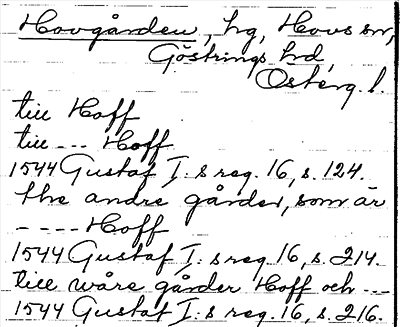 Hovgården, hg, Hovs sn,
Göstrings hd,
Österg. l.
till Hoff
till --- Hoff
1544 Gustaf I:s reg. 16, s. 124.
the andre gårder, som är
---- Hoff
1544 Gustaf I:s reg. 16, s. 214.
till wåre gårder Hoff och ---
1544 Gustaf I:s reg. 16, s. 216.